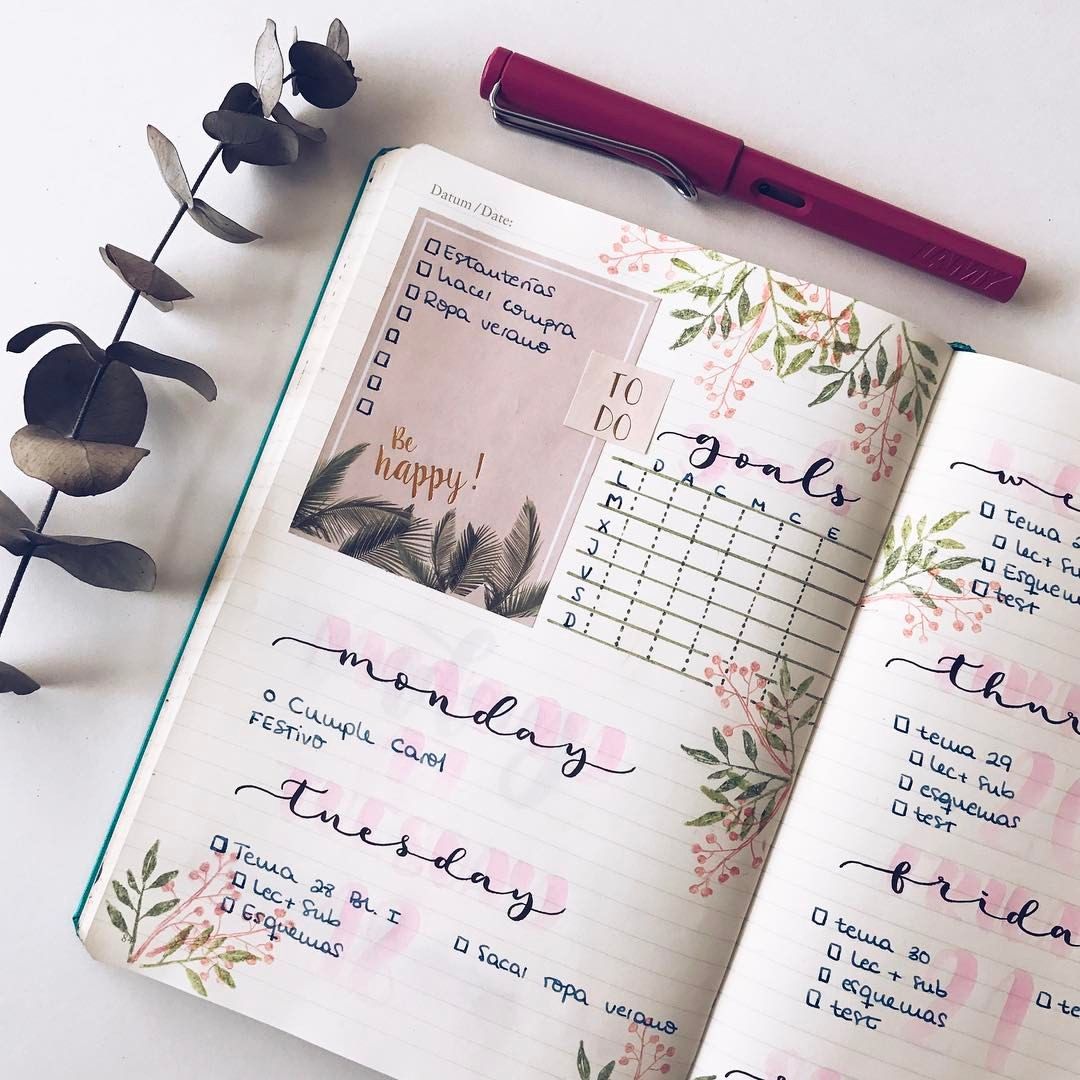 Datum / Date:
□ Estanterías
□ hacer compra
□ Ropa verano
□
□
□
□
□
Be
happy!
TO
DO
goals
D A C M C E
L
M
X
J
V
S
D
monday
o Cumple Carol
FESTIVO
tuesday
□ Tema 28 Bl. I
□ Lec + Sub
□ Esquemas
□ Sacar ropa verano
□ tema
□ lec + sub
□ Esquem
□ test
□ tema 29
□ lec + sub
□ esquemas
□ test
frida
□ tema 30
□ lec + sub
□ esquemas
□ test
□ te
LAMY